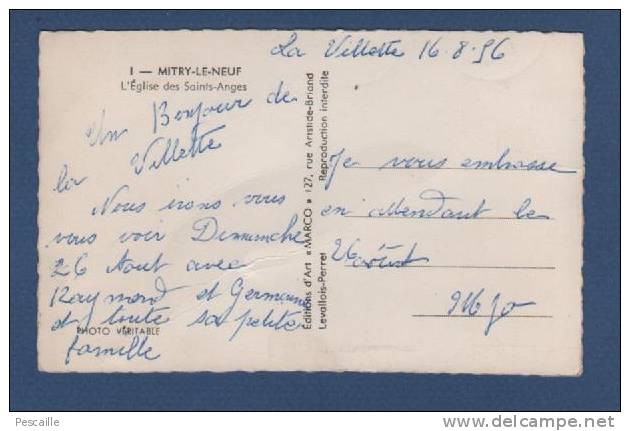 La Villette 16-8-56
1 — MITRY-LE-NEUF
L'Église des Saints-Anges
Un Bonjour de
la Villette
Nous irons vous
vous voir Dimanche
26 Aout avec
Raymond et Germaine
et toute sa petite
famille
PHOTO VÉRITABLE
Éditions d'Art « MARCO » 127, rue Aristide-Briand
Levallois-Perret Reproduction interdite
Je vous embrasse
en attendant le
26 août
Pescaille
www.delcampe.net